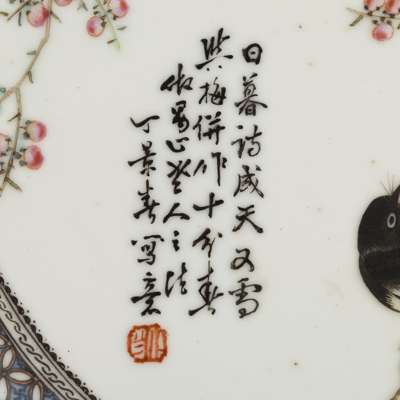 日暮詩成天又雪
與梅併作十分春
倣冒山老人之法
丁景春寫意